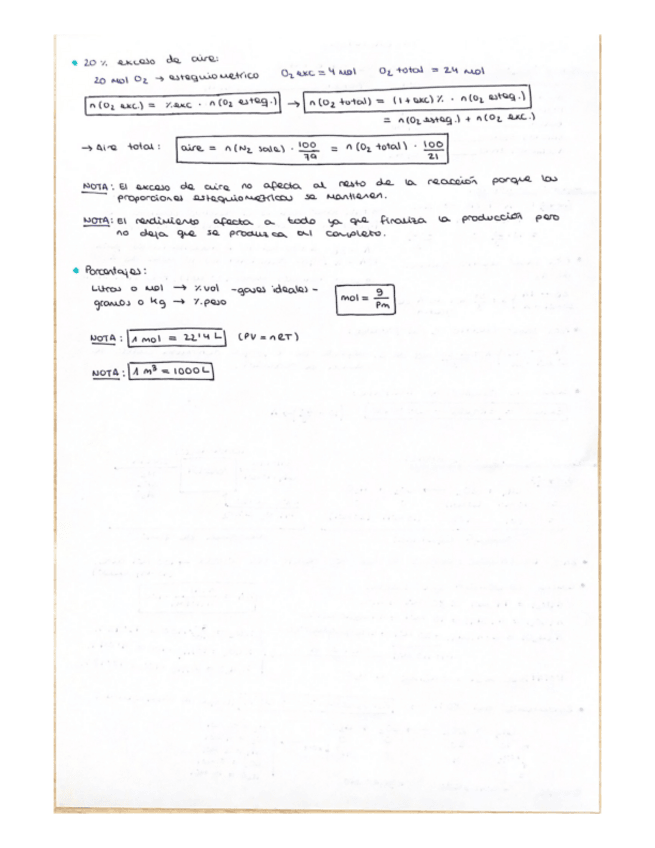 • 20 % exceso de aire:
20 mol O₂ → estequiometrico O₂ exc = 4 mol O₂ total = 24 mol
n(O₂ exc.) = %exc · n(O₂ esteq.) → n(O₂ total) = (1 + exc) % · n(O₂ esteq.)
= n(O₂ esteq.) + n(O₂ exc.)
→ Aire total: aire = n(N₂ sale) · 100/79 = n(O₂ total) · 100/21
NOTA: El exceso de aire no afecta al resto de la reacción porque las
proporciones estequiometricas se mantienen.
NOTA: El rendimiento afecta a todo ya que finaliza la producción pero
no deja que se produzca al completo.
• Porcentajes:
Litros o mol → %vol -gases ideales-
gramos o kg → %peso mol = g/Pm
NOTA: 1 mol = 22'4 L (PV = nRT)
NOTA: 1 m³ = 1000 L